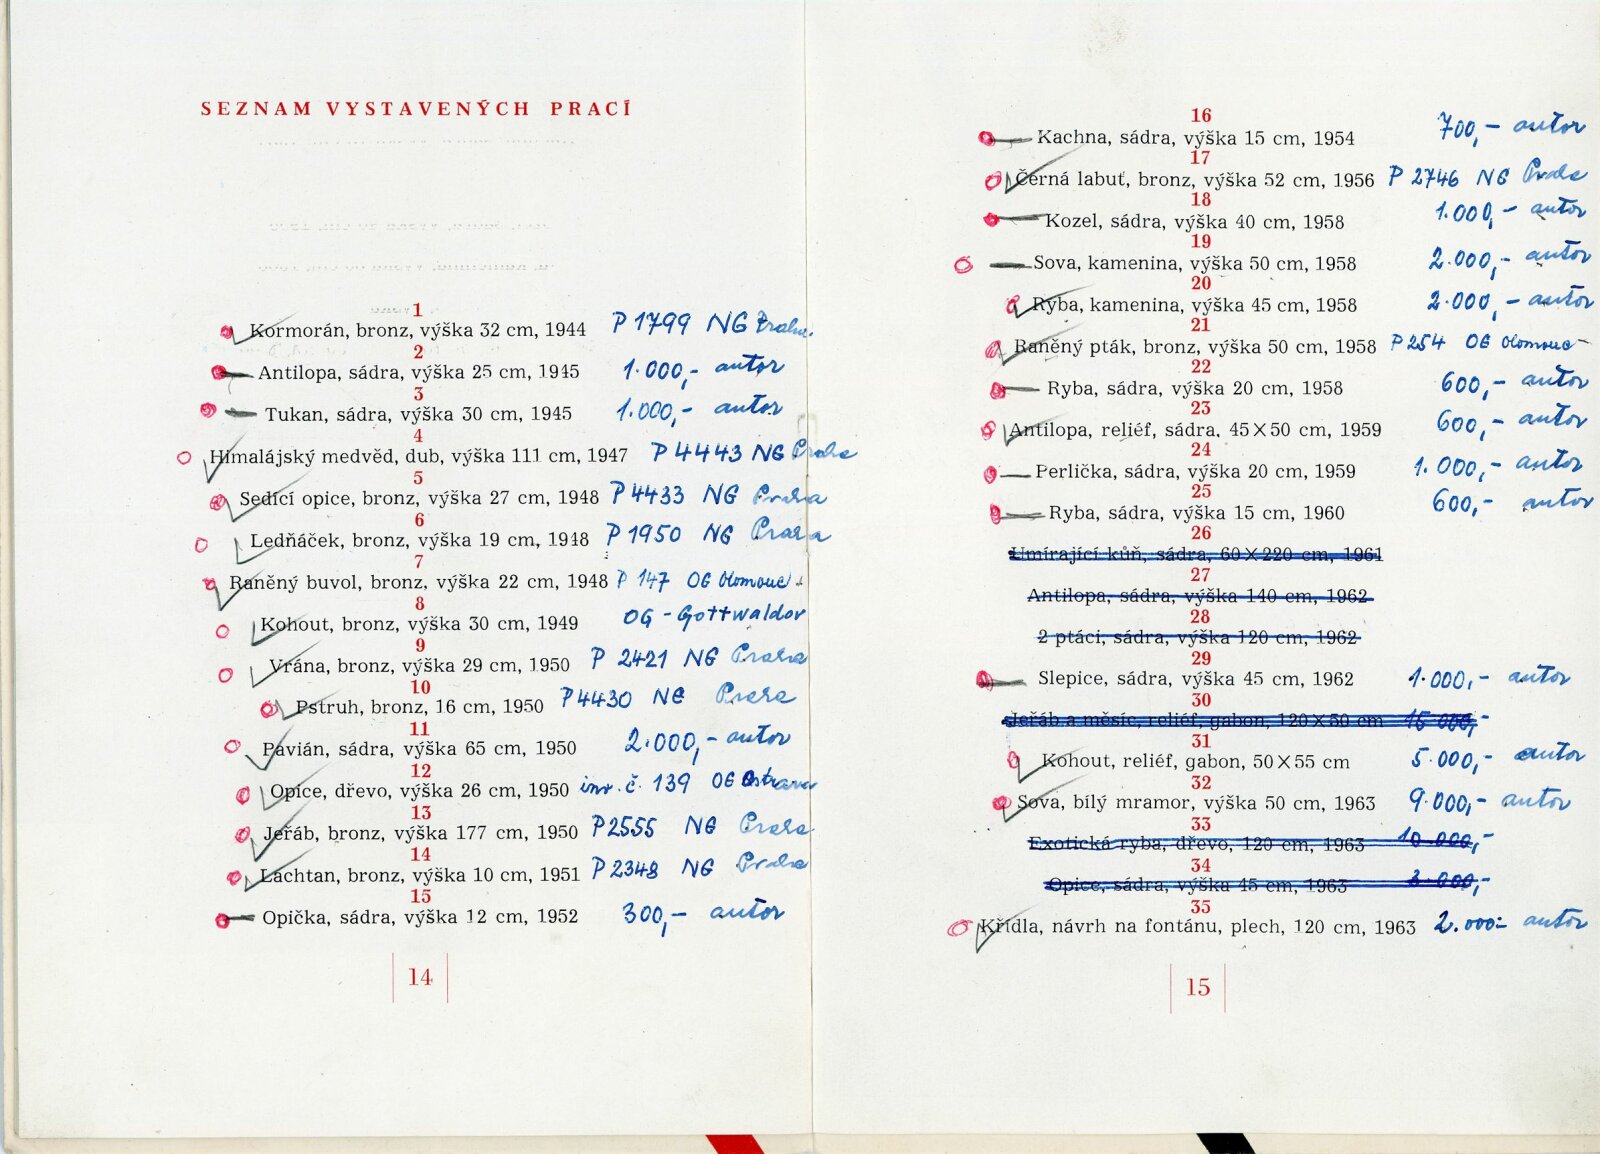 SEZNAM VYSTAVENÝCH PRACÍ
1
Kormorán, bronz, výška 32 cm, 1944 P 1799 NG Praha
2
Antilopa, sádra, výška 25 cm, 1945 1.000,- autor
3
Tukan, sádra, výška 30 cm, 1945 1.000,- autor
4
Himalájský medvěd, dub, výška 111 cm, 1947 P 4443 NG Praha
5
Sedící opice, bronz, výška 27 cm, 1948 P 4433 NG Praha
6
Ledňáček, bronz, výška 19 cm, 1948 P 1950 NG Praha
7
Raněný buvol, bronz, výška 22 cm, 1948 P 147 OG Olomouc
8
Kohout, bronz, výška 30 cm, 1949 OG - Gottwaldov
9
Vrána, bronz, výška 29 cm, 1950 P 2421 NG Praha
10
Pstruh, bronz, 16 cm, 1950 P 4430 NG Praha
11
Pavián, sádra, výška 65 cm, 1950 2.000,- autor
12
Opice, dřevo, výška 26 cm, 1950 inv. č. 139 OG Ostrava
13
Jeřáb, bronz, výška 177 cm, 1950 P 2555 NG Praha
14
Lachtan, bronz, výška 10 cm, 1951 P 2348 NG Praha
15
Opička, sádra, výška 12 cm, 1952 300,- autor
14
16
Kachna, sádra, výška 15 cm, 1954 700,- autor
17
Černá labuť, bronz, výška 52 cm, 1956 P 2746 NG Praha
18
Kozel, sádra, výška 40 cm, 1958 1.000,- autor
19
Sova, kamenina, výška 50 cm, 1958 2.000,- autor
20
Ryba, kamenina, výška 45 cm, 1958 2.000,- autor
21
Raněný pták, bronz, výška 50 cm, 1958 P 254 OG Olomouc
22
Ryba, sádra, výška 20 cm, 1958 600,- autor
23
Antilopa, reliéf, sádra, 45×50 cm, 1959 600,- autor
24
Perlička, sádra, výška 20 cm, 1959 1.000,- autor
25
Ryba, sádra, výška 15 cm, 1960 600,- autor
26
Umírající kůň, sádra, 60×220 cm, 1961
27
Antilopa, sádra, výška 140 cm, 1962
28
2 ptáci, sádra, výška 120 cm, 1962
29
Slepice, sádra, výška 45 cm, 1962 1.000,- autor
30
Jeřáb a měsíc, reliéf, gabon, 120×50 cm 15 000,-
31
Kohout, reliéf, gabon, 50×55 cm 5.000,- autor
32
Sova, bílý mramor, výška 50 cm, 1963 9.000,- autor
33
Exotická ryba, dřevo, 120 cm, 1963 10.000,-
34
Opice, sádra, výška 45 cm, 1963 3.000,-
35
Křídla, návrh na fontánu, plech, 120 cm, 1963 2.000.- autor
15